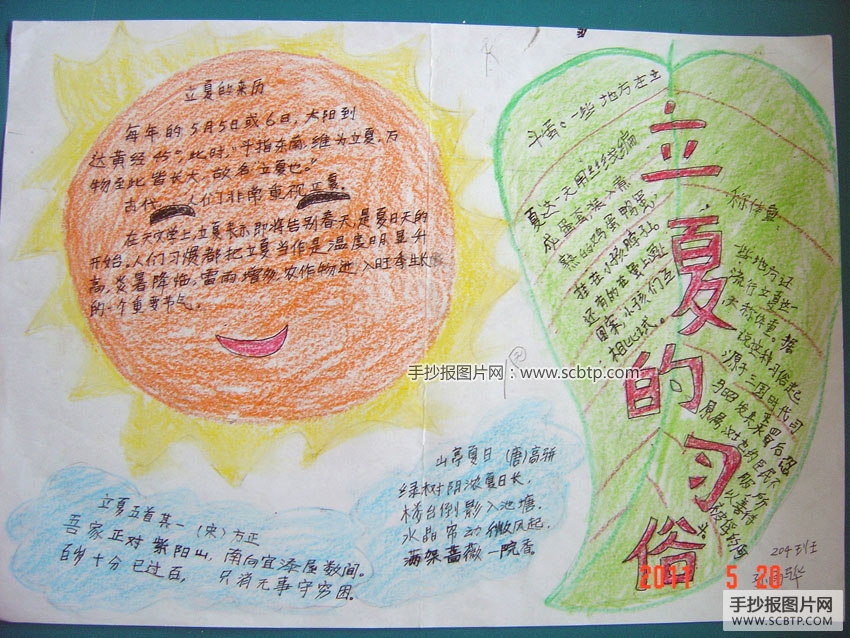 立夏的来历
每年的5月5日或6日,太阳到
达黄经45°此时,"斗指东南,维为立夏,万
物至此皆长大,故名立夏也。"
古代 人们非常重视立夏.
在天文学上,立夏表示即将告别春天,是夏日天的
开始.人们习惯都把立夏当作是温度明显升
高,炎暑降临,雷雨增多,农作物进入旺季生长
的一个重要节气。
立夏五首其一(宋)方正
吾家正对紫阳山,南向宜添屋数间。
百岁十分已过百,只消无事守穷困。
山亭夏日(唐)高骈
绿树阴浓夏日长,
楼台倒影入池塘.
水晶帘动微风起,
满架蔷薇一院香。
立夏的习俗
斗蛋:一些地方在立
夏这一天用丝线编
成蛋套,装入煮
熟的鸡蛋鸭蛋,
挂在小孩脖子上
还有的在蛋上画
图案,小孩们互
相比试。
称体重:
些地方还
流行立夏这
天称体重。据
说这种习俗起
源于三国时代司
204班
2011 5 20
手抄报图片网:www.scbtp.com
手抄报图片网
WWW.SCBTP.COM